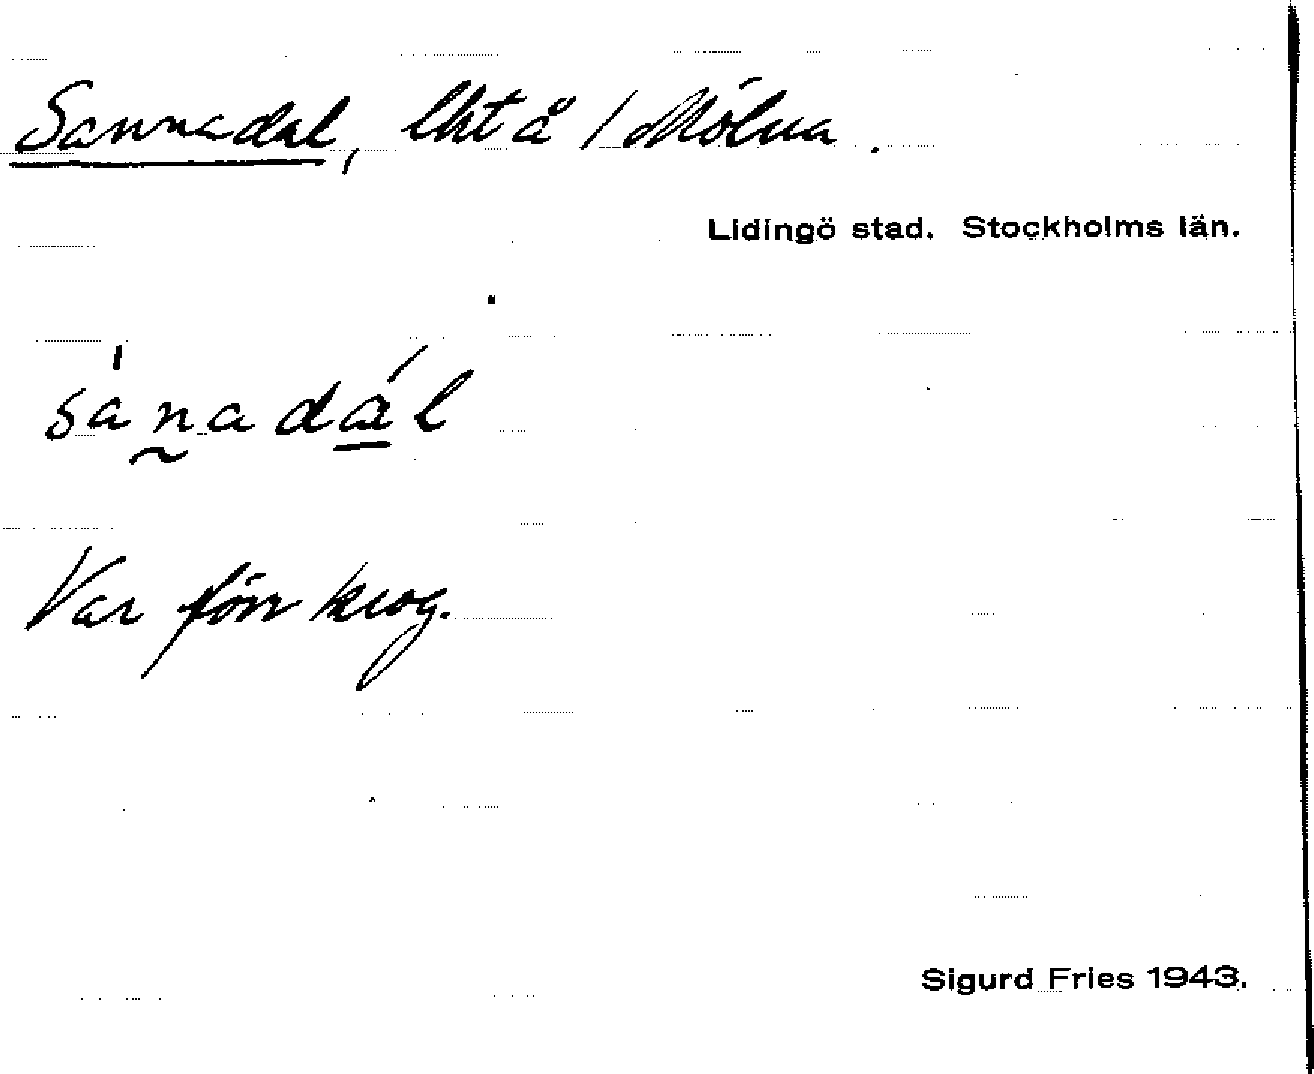 Sannadal, lht å 1 Mölna.
Lidingö stad. Stockholms län.
sánadál
Var förr krog.
Sigurd Fries 1943.